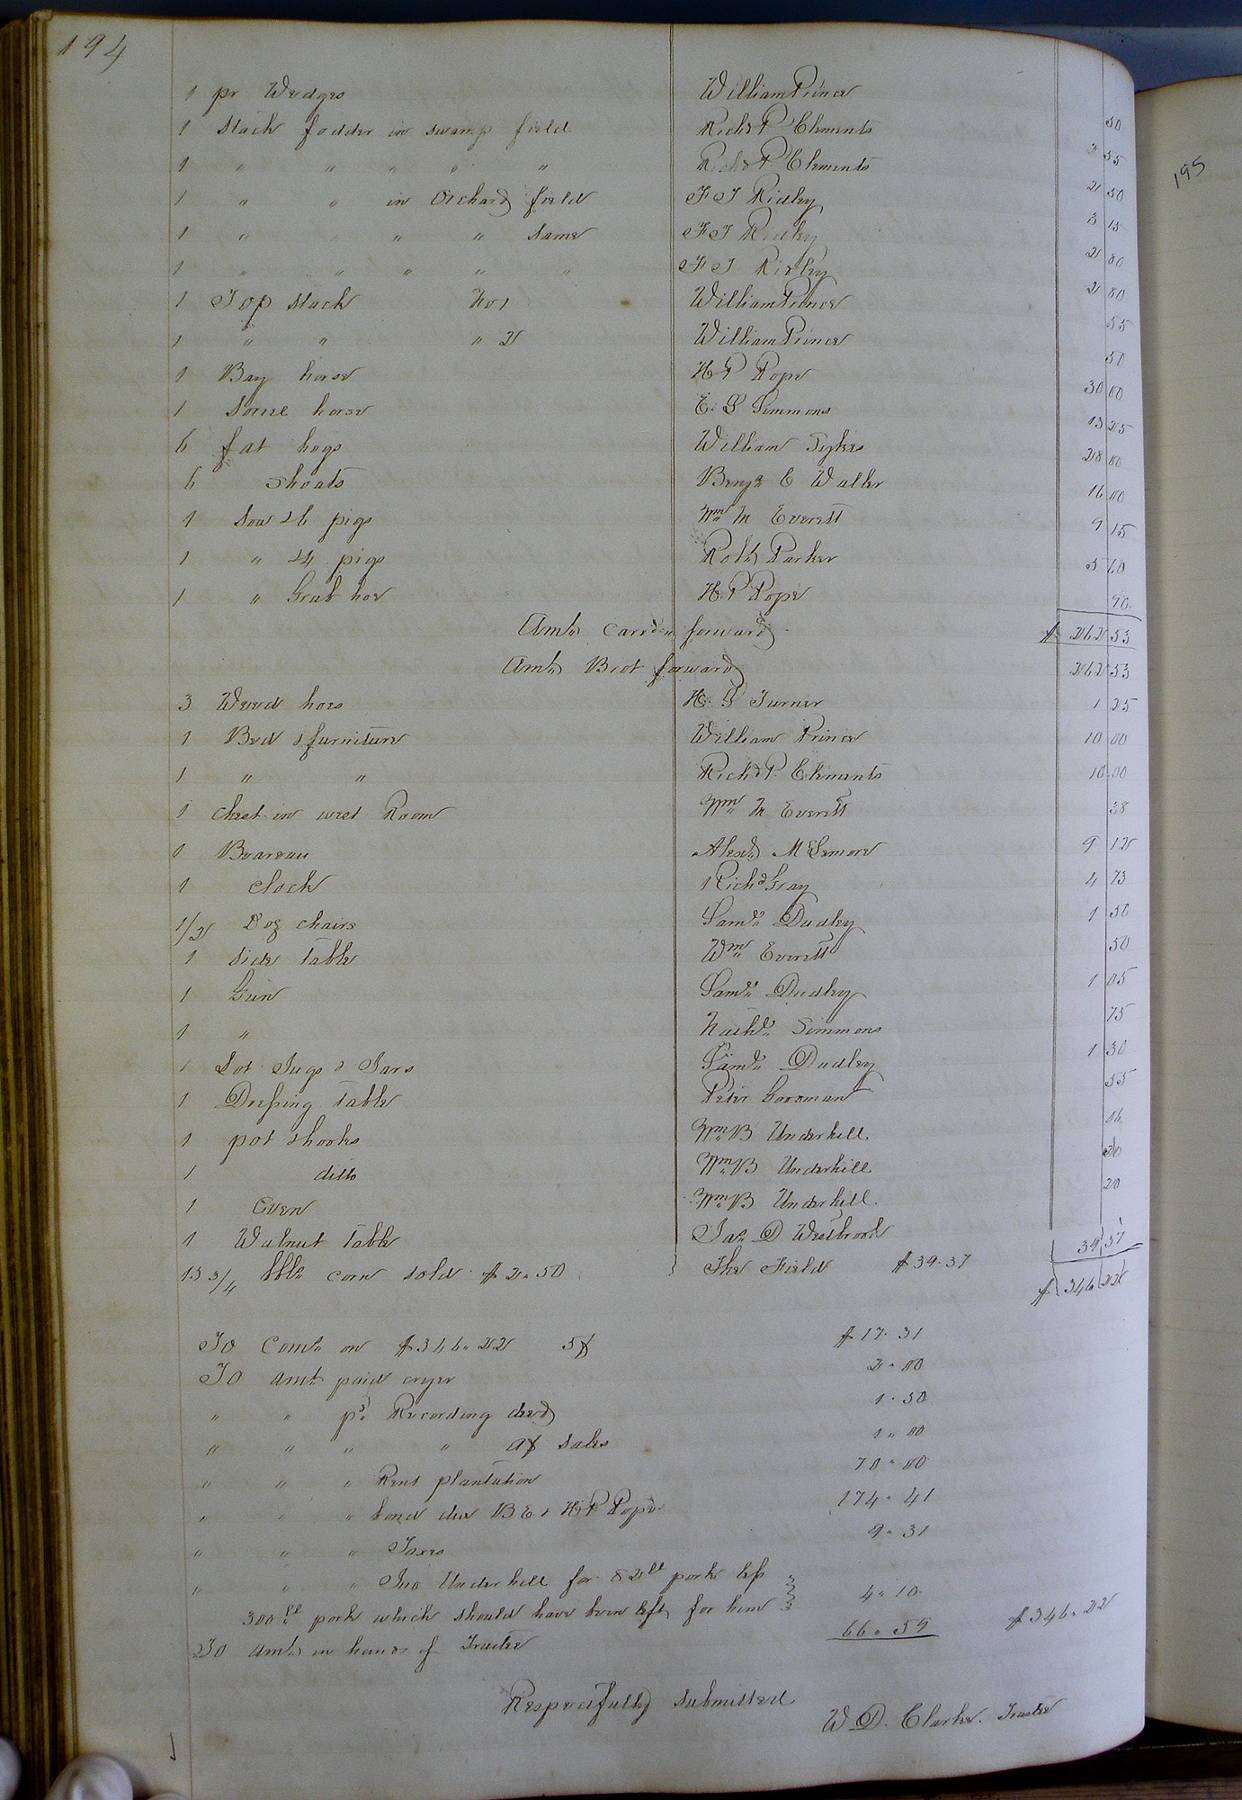 194
1 pr Wedges William Prince 50
1 Stack fodder in swamp field Richd P. Clements 2 55
1 " " " " " Richd P. Clements 2 50
1 " " in Orchard field F J Ridley 3 15
1 " " " " same F J Ridley 2 80
1 " " " " " F J Ridley 2 80
1 Top stack No 1 William Prince 55
1 " " " 2 William Prince 50
1 Bay horse H P Pope 30 00
1 Sorrel horse E. S Simmons 13 25
6 fat hogs William Sykes 28 00
6 Shoats Benjn E Waller 16 00
1 Sow & 6 pigs Wm M Everett 9 15
1 " & 4 pigs Robt Parker 5 60
1 " Grub hoe H. P Pope 90
Amt. carred forward $ 262 53
Amt. Brot forward 262 53
3 Weed hoes H. G Turner 1 25
1 Bed & furniture William Prince 10 00
1 " " Richd P. Clements 10 00
1 Chest in west Room Wm M Everett 38
1 Beareau Alexd McLemore 9 12
1 Clock Richd Gray 4 73
1/2 Doz chairs Saml. Dudley 1 50
1 Side table Wm Everett 50
1 Gun Saml. Dudley 1 05
1 " Nathl. Simmons 75
1 Lot Jugs & Jars Saml. Dudley 1 30
1 Dressing table Peter Goodman 55
1 pot & hooks Wm B Underhill 06
1 ditto Wm B Underhill
1 Oven Wm B Underhill. 20
1 Walnut table Jas D Westbrook
15 3/4 bbls corn sold $2.50 The Field $39.37 39 37
$ 346 22
To Coms on $346.22 5% $17.31
To amt. paid cryer 2.00
" " pd. Recording deed 1.50
" " " " a/c sales 1.00
" " " Rent plantation 70.00
" " " bond due B E & H P Pope 174.41
" " " Taxes 9.31
" " " Jno Underhill for 82 lb pork left
300 lb pork which should have been left for him 4.10
To Amt. in hands of Trustee 66.59 $346.22
Respectfully Submitted
W D. Clarke. Trustee
195